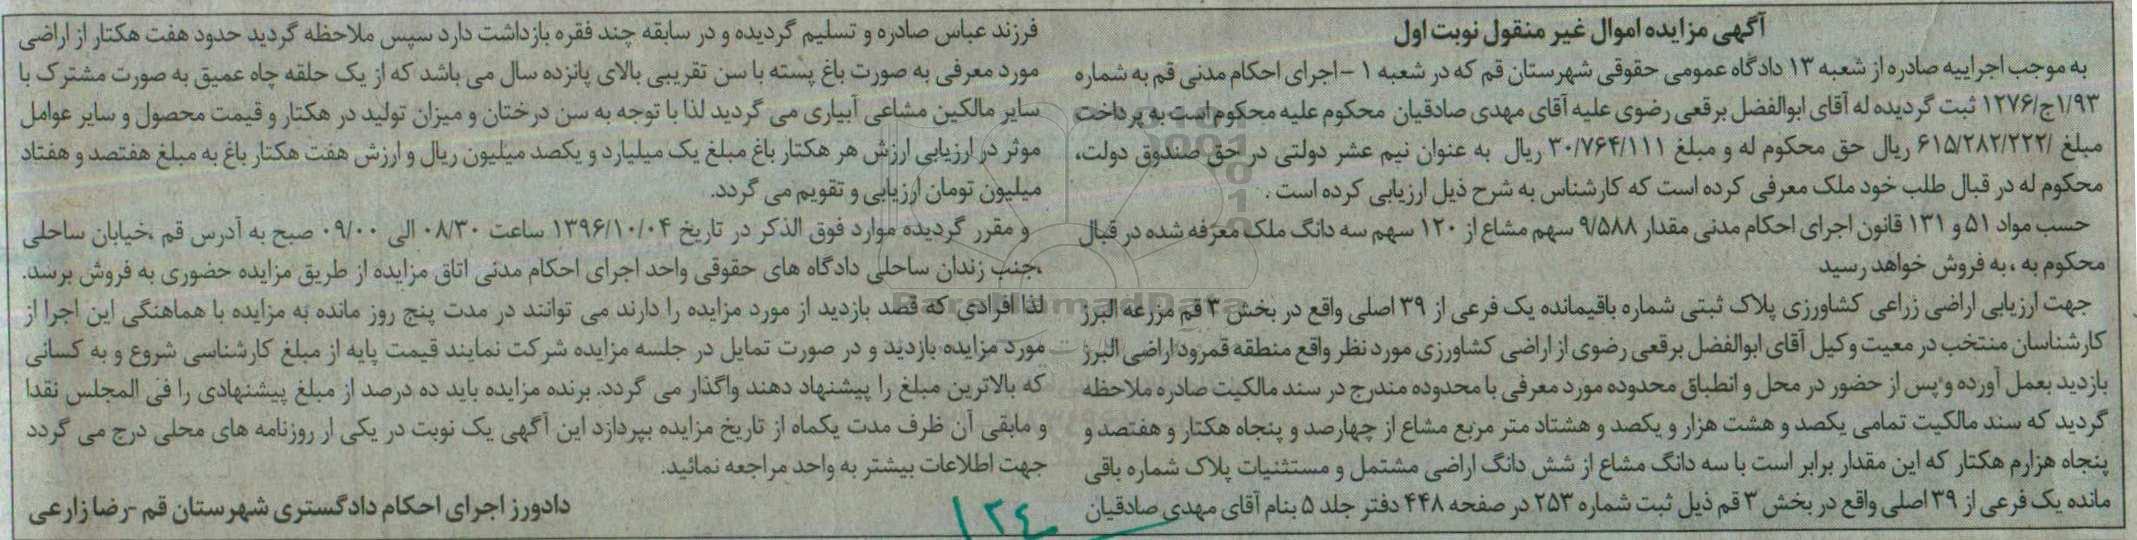 آگهی مزایده اموال غیر منقول نوبت اول
به موجب اجراییه صادره از شعبه ۱۳ دادگاه عمومی حقوقی شهرستان قم که در شعبه ۱ -اجرای احکام مدنی قم به شماره
۱/۹۳ج/۱۲۷۶ ثبت گردیده له آقای ابوالفضل برقعی رضوی علیه آقای مهدی صادقیان محکوم علیه محکوم است به پرداخت
مبلغ /۶۱۵/۲۸۲/۲۲۲ ریال حق محکوم له و مبلغ ۳۰/۷۶۴/۱۱۱ ریال به عنوان نیم عشر دولتی در حق صندوق دولت،
محکوم له در قبال طلب خود ملک معرفی کرده است که کارشناس به شرح ذیل ارزیابی کرده است .
حسب مواد ۵۱ و ۱۳۱ قانون اجرای احکام مدنی مقدار ۹/۵۸۸ سهم مشاع از ۱۲۰ سهم سه دانگ ملک معرفه شده در قبال
محکوم به ، به فروش خواهد رسید
جهت ارزیابی اراضی زراعی کشاورزی پلاک ثبتی شماره باقیمانده یک فرعی از ۳۹ اصلی واقع در بخش ۳ قم مزرعه البرز
کارشناسان منتخب در معیت وکیل آقای ابوالفضل برقعی رضوی از اراضی کشاورزی مورد نظر واقع منطقه قمرود اراضی البرز
بازدید بعمل آورده و پس از حضور در محل و انطباق محدوده مورد معرفی با محدوده مندرج در سند مالکیت صادره ملاحظه
گردید که سند مالکیت تمامی یکصد و هشت هزار و یکصد و هشتاد متر مربع مشاع از چهارصد و پنجاه هکتار و هفتصد و
پنجاه هزارم هکتار که این مقدار برابر است با سه دانگ مشاع از شش دانگ اراضی مشتمل و مستثنیات پلاک شماره باقی
مانده یک فرعی از ۳۹ اصلی واقع در بخش ۳ قم ذیل ثبت شماره ۲۵۳ در صفحه ۴۴۸ دفتر جلد ۵ بنام آقای مهدی صادقیان
فرزند عباس صادره و تسلیم گردیده و در سابقه چند فقره بازداشت دارد سپس ملاحظه گردید حدود هفت هکتار از اراضی
مورد معرفی به صورت باغ پسته با سن تقریبی بالای پانزده سال می باشد که از یک حلقه چاه عمیق به صورت مشترک با
سایر مالکین مشاعی آبیاری می گردید لذا با توجه به سن درختان و میزان تولید در هکتار و قیمت محصول و سایر عوامل
موثر در ارزیابی ارزش هر هکتار باغ مبلغ یک میلیارد و یکصد میلیون ریال و ارزش هفت هکتار باغ به مبلغ هفتصد و هفتاد
میلیون تومان ارزیابی و تقویم می گردد.
و مقرر گردیده موارد فوق الذکر در تاریخ ۱۳۹۶/۱۰/۰۴ ساعت ۰۸/۳۰ الی ۰۹/۰۰ صبح به آدرس قم ،خیابان ساحلی
،جنب زندان ساحلی دادگاه های حقوقی واحد اجرای احکام مدنی اتاق مزایده از طریق مزایده حضوری به فروش برسد.
لذا افرادی که قصد بازدید از مورد مزایده را دارند می توانند در مدت پنج روز مانده به مزایده با هماهنگی این اجرا از
مورد مزایده بازدید و در صورت تمایل در جلسه مزایده شرکت نمایند قیمت پایه از مبلغ کارشناسی شروع و به کسانی
که بالاترین مبلغ را پیشنهاد دهند واگذار می گردد. برنده مزایده باید ده درصد از مبلغ پیشنهادی را فی المجلس نقدا
و مابقی آن ظرف مدت یکماه از تاریخ مزایده بپردازد این آگهی یک نوبت در یکی از روزنامه های محلی درج می گردد
جهت اطلاعات بیشتر به واحد مراجعه نمائید.
دادورز اجرای احکام دادگستری شهرستان قم -رضا زارعی
۱۲۴۰
ParsNamadData